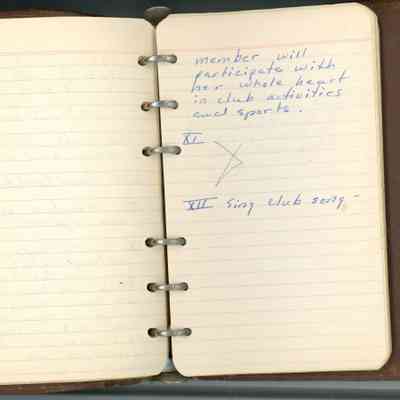 member will
participate with
her whole heart
in club activities
and sports.
XI
XII Sing club song -